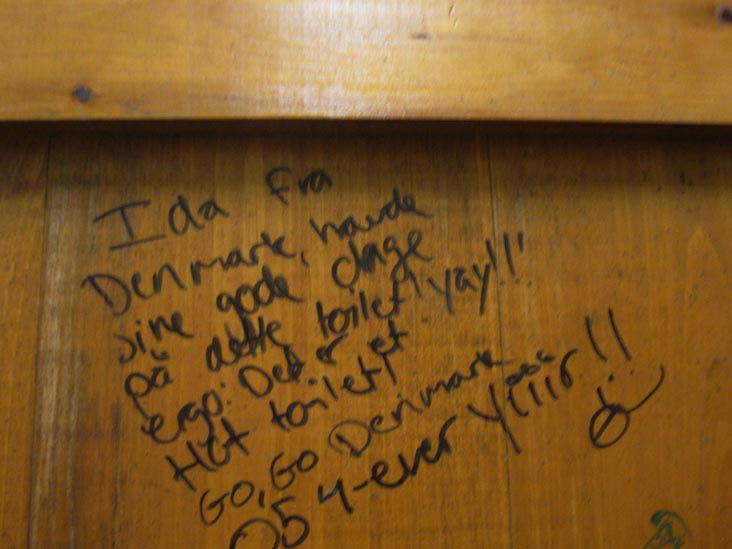 Ida fra
Denmark, havde
sine gode dage
på dette toilet! yay!!!
ergo: Det er et
Hot toilet!
GO, GO Denmark...
05 4-ever